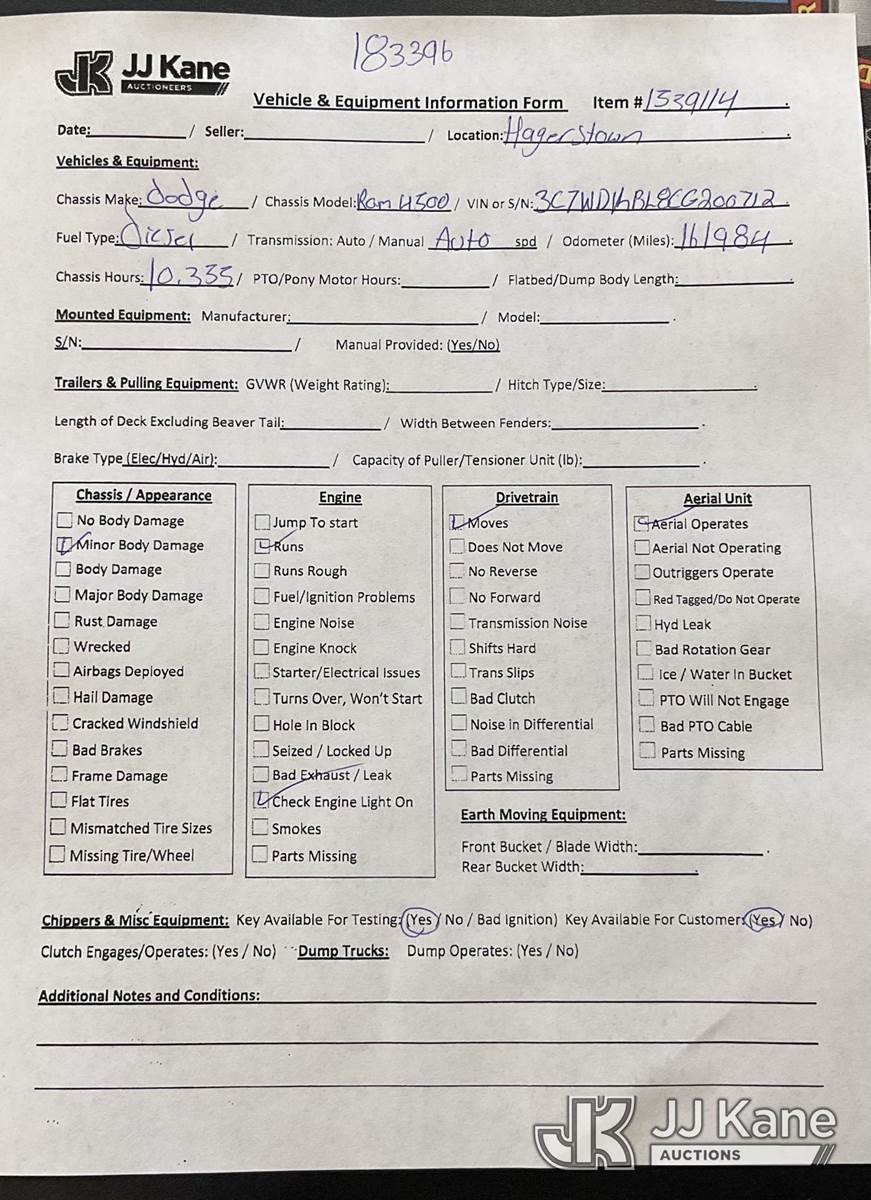 183396
JK JJ Kane
AUCTIONEERS
Vehicle & Equipment Information Form Item # 1539114 .
Date: / Seller: / Location: Hagerstown .
Vehicles & Equipment:
Chassis Make: dodge / Chassis Model: Ram 4500 / VIN or S/N: 3C7WDKBL8CG200712 .
Fuel Type: Diesel / Transmission: Auto / Manual Auto spd / Odometer (Miles): 161984 .
Chassis Hours: 10,335 / PTO/Pony Motor Hours: / Flatbed/Dump Body Length: .
Mounted Equipment: Manufacturer: / Model: .
S/N: / Manual Provided: (Yes/No)
Trailers & Pulling Equipment: GVWR (Weight Rating): / Hitch Type/Size: .
Length of Deck Excluding Beaver Tail: / Width Between Fenders: .
Brake Type (Elec/Hyd/Air): / Capacity of Puller/Tensioner Unit (lb): .
Chassis / Appearance
No Body Damage
Minor Body Damage
Body Damage
Major Body Damage
Rust Damage
Wrecked
Airbags Deployed
Hail Damage
Cracked Windshield
Bad Brakes
Frame Damage
Flat Tires
Mismatched Tire Sizes
Missing Tire/Wheel
Engine
Jump To start
Runs
Runs Rough
Fuel/Ignition Problems
Engine Noise
Engine Knock
Starter/Electrical Issues
Turns Over, Won't Start
Hole In Block
Seized / Locked Up
Bad Exhaust / Leak
Check Engine Light On
Smokes
Parts Missing
Drivetrain
Moves
Does Not Move
No Reverse
No Forward
Transmission Noise
Shifts Hard
Trans Slips
Bad Clutch
Noise in Differential
Bad Differential
Parts Missing
Aerial Unit
Aerial Operates
Aerial Not Operating
Outriggers Operate
Red Tagged/Do Not Operate
Hyd Leak
Bad Rotation Gear
Ice / Water In Bucket
PTO Will Not Engage
Bad PTO Cable
Parts Missing
Earth Moving Equipment:
Front Bucket / Blade Width: .
Rear Bucket Width: .
Chippers & Misc Equipment: Key Available For Testing: (Yes / No / Bad Ignition) Key Available For Customer: (Yes / No)
Clutch Engages/Operates: (Yes / No) Dump Trucks: Dump Operates: (Yes / No)
Additional Notes and Conditions:
JK JJ Kane
AUCTIONS